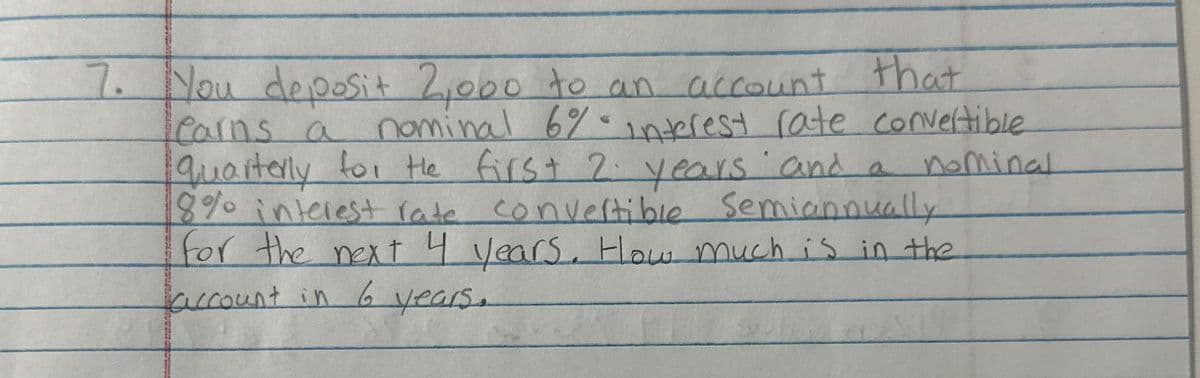 7. You deposit 2,000 to an account that
earns a nominal 6% interest rate convertible
quarterly for the first 2 years and a nominal
8% interest rate convertible semiannually
for the next 4 years. How much is in the
account in 6 years.